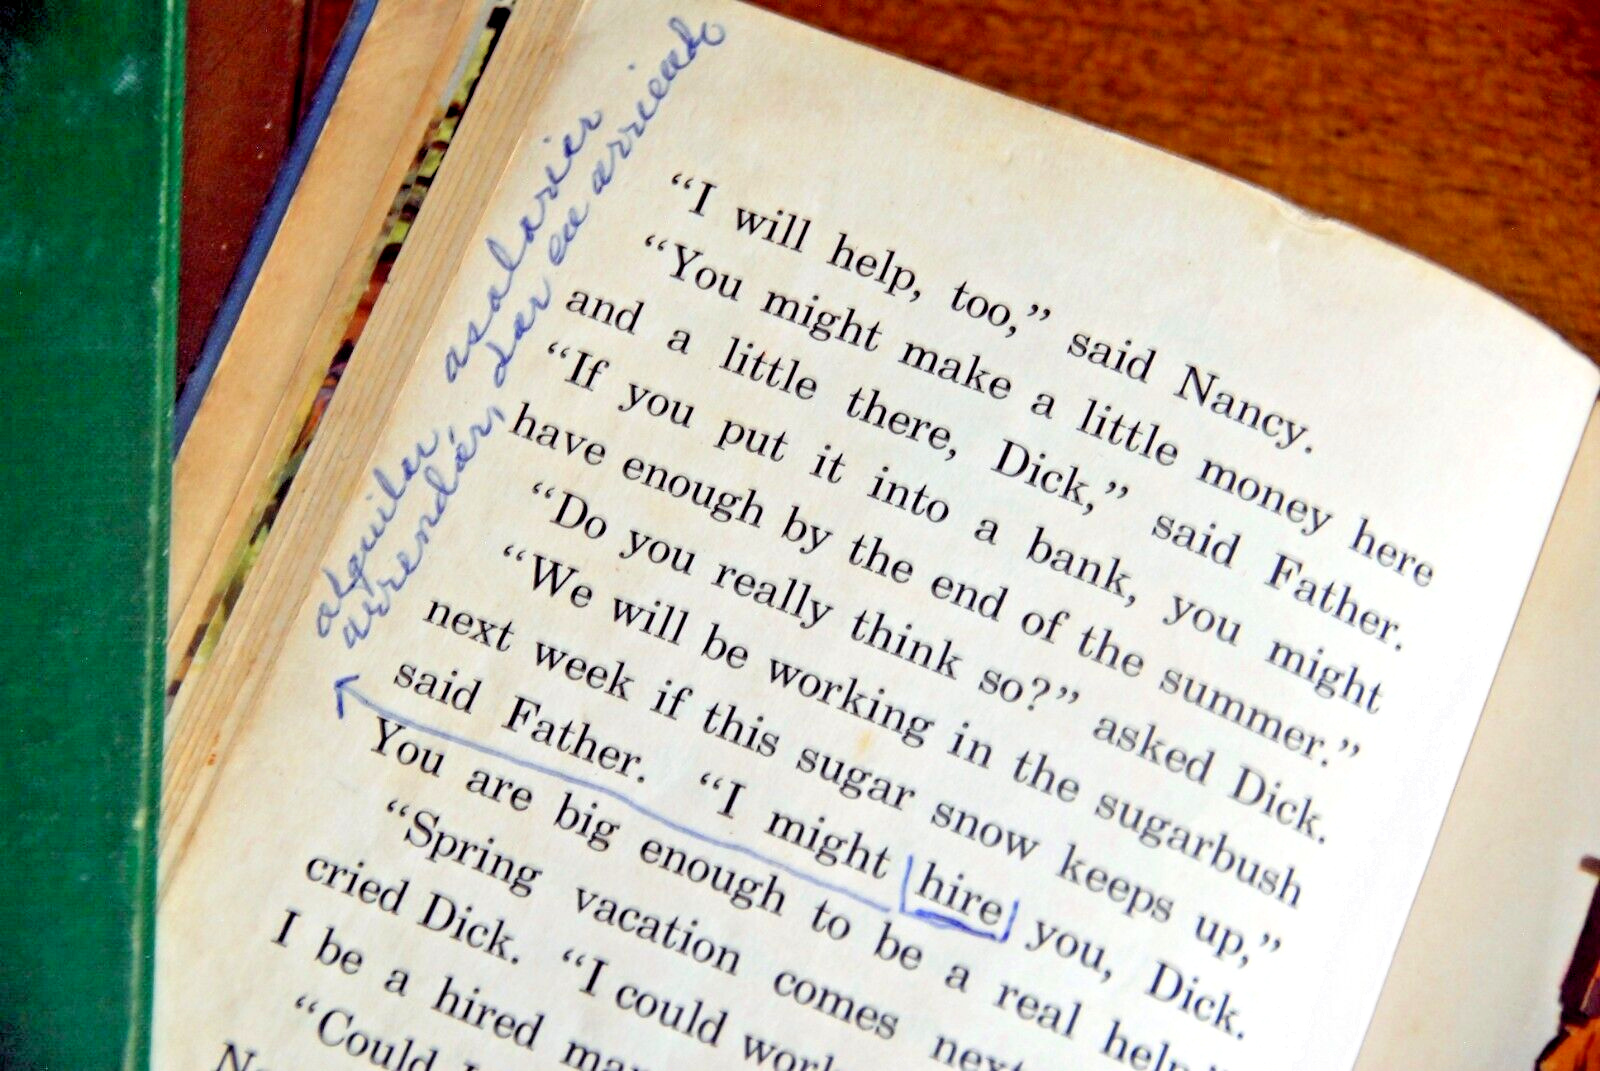 alquilar, asalarier
arrendár, dar en arriendo
“I will help, too,” said Nancy.
“You might make a little money here
and a little there, Dick,” said Father.
“If you put it into a bank, you might
have enough by the end of the summer.”
“Do you really think so?” asked Dick.
“We will be working in the sugarbush
next week if this sugar snow keeps up,”
said Father. “I might hire you, Dick.
You are big enough to be a real help.”
“Spring vacation comes next
cried Dick. “I could work
I be a hired man
“Could I